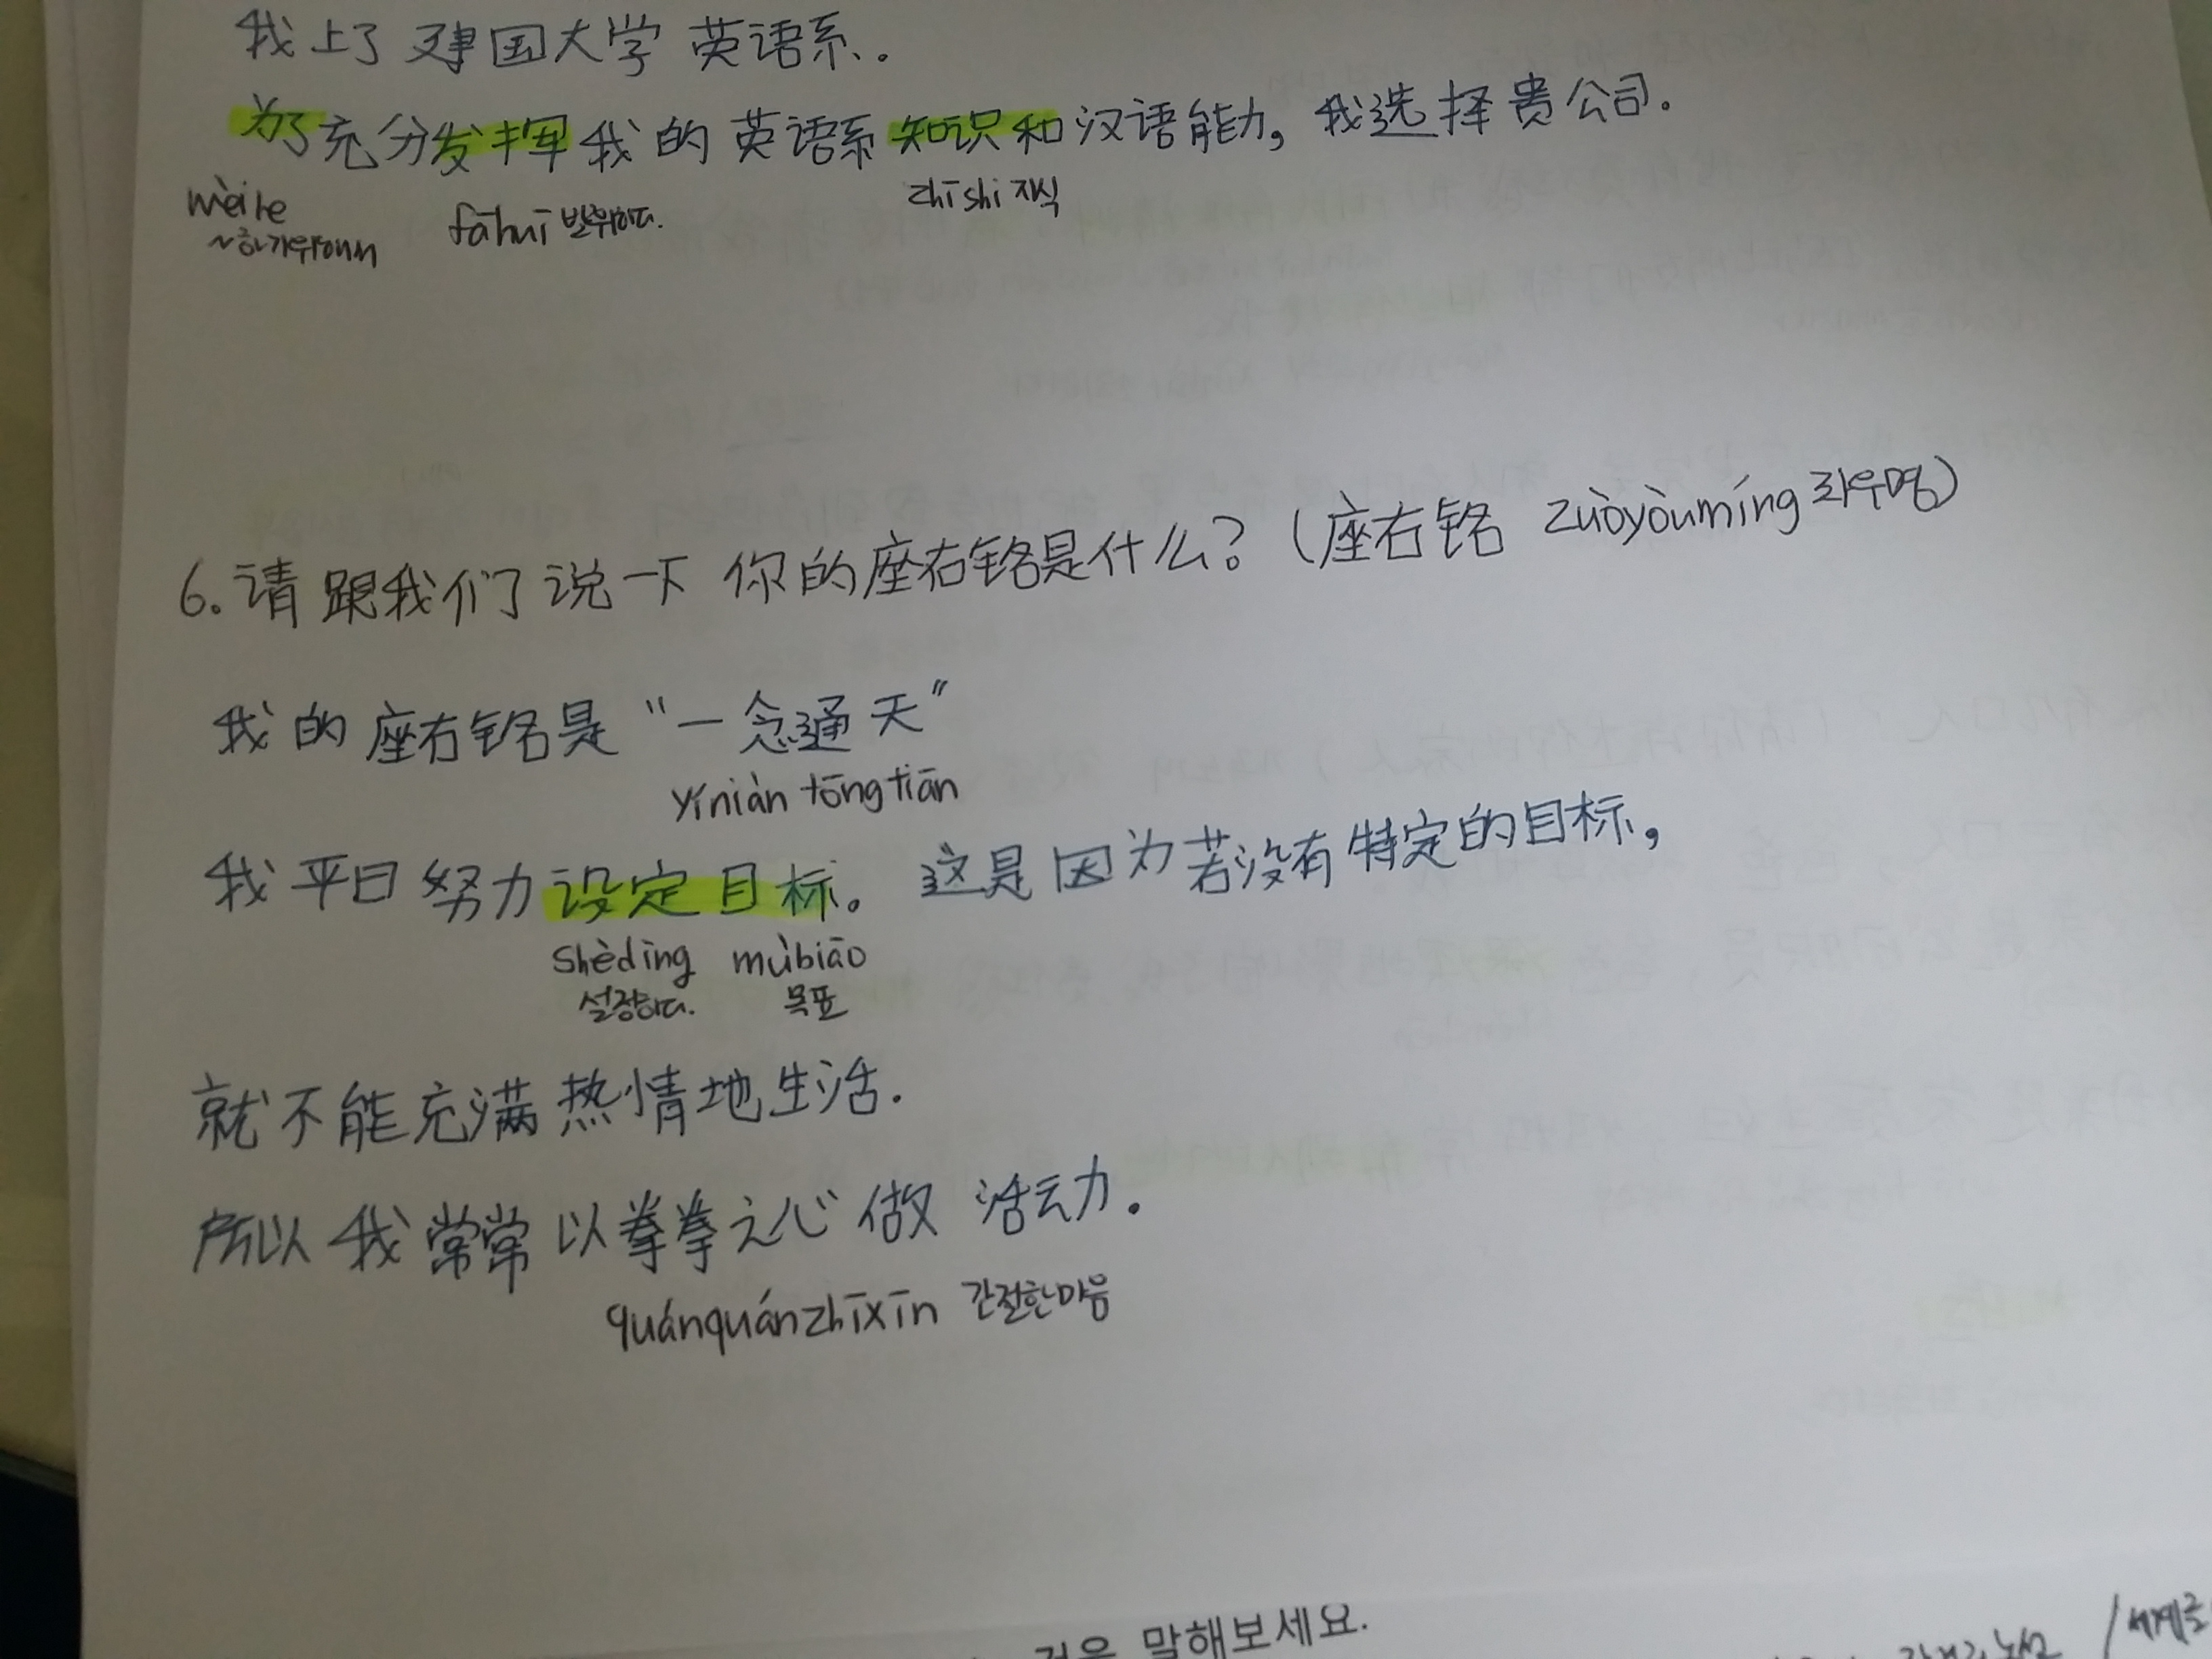 我上了建国大学 英语系.
为了充分发挥我的英语系知识和汉语能力, 我选择贵公司.
wèile fāhuī 발휘하다. zhīshi 지식
~하기위해서
6. 请跟我们说一下 你的座右铭是什么? (座右铭 zuòyòumíng 좌우명)
我的座右铭是 "一念通天"
yíniàn tōngtiān
我平日努力设定目标。这是因为若没有特定的目标,
shèdìng mùbiāo
설정하다. 목표
就不能充满热情地生活.
所以我常常以拳拳之心做 活动.
quánquánzhīxīn 간절한마음
것을 말해보세요.